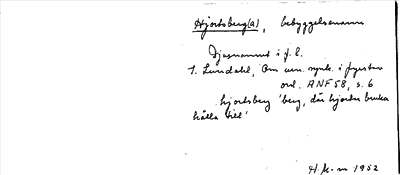 Hjortsberg(a), bebyggelsenamn
Djurnamnet i f. l.
1. Lundahl, Om sen. synk. i fyrstav.
ord. ANF 58, s. 6
hjortsberg 'berg, där hjortar bruka
hålla till'
1952